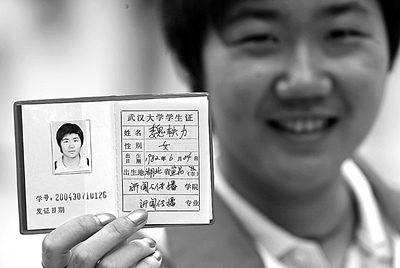 武汉大学学生证
姓名 魏轶力
性别 女
出生日期 1982年6月24日
出生地 湖北省 (市)
新闻与传播 学院
新闻传播 专业
学号: 200430710126
发证日期